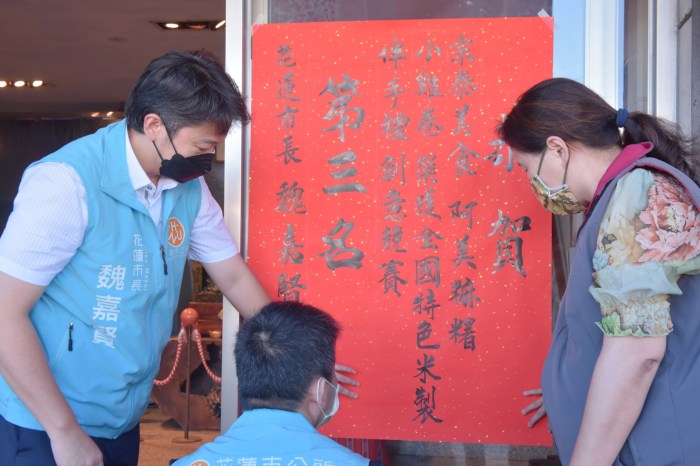 恭賀
宗泰美食 阿美麻糬
小雞卷 榮獲全國特色米製
伴手禮創意競賽
第三名
花蓮市長 魏嘉賢
花蓮市長
魏嘉賢
花蓮市公所